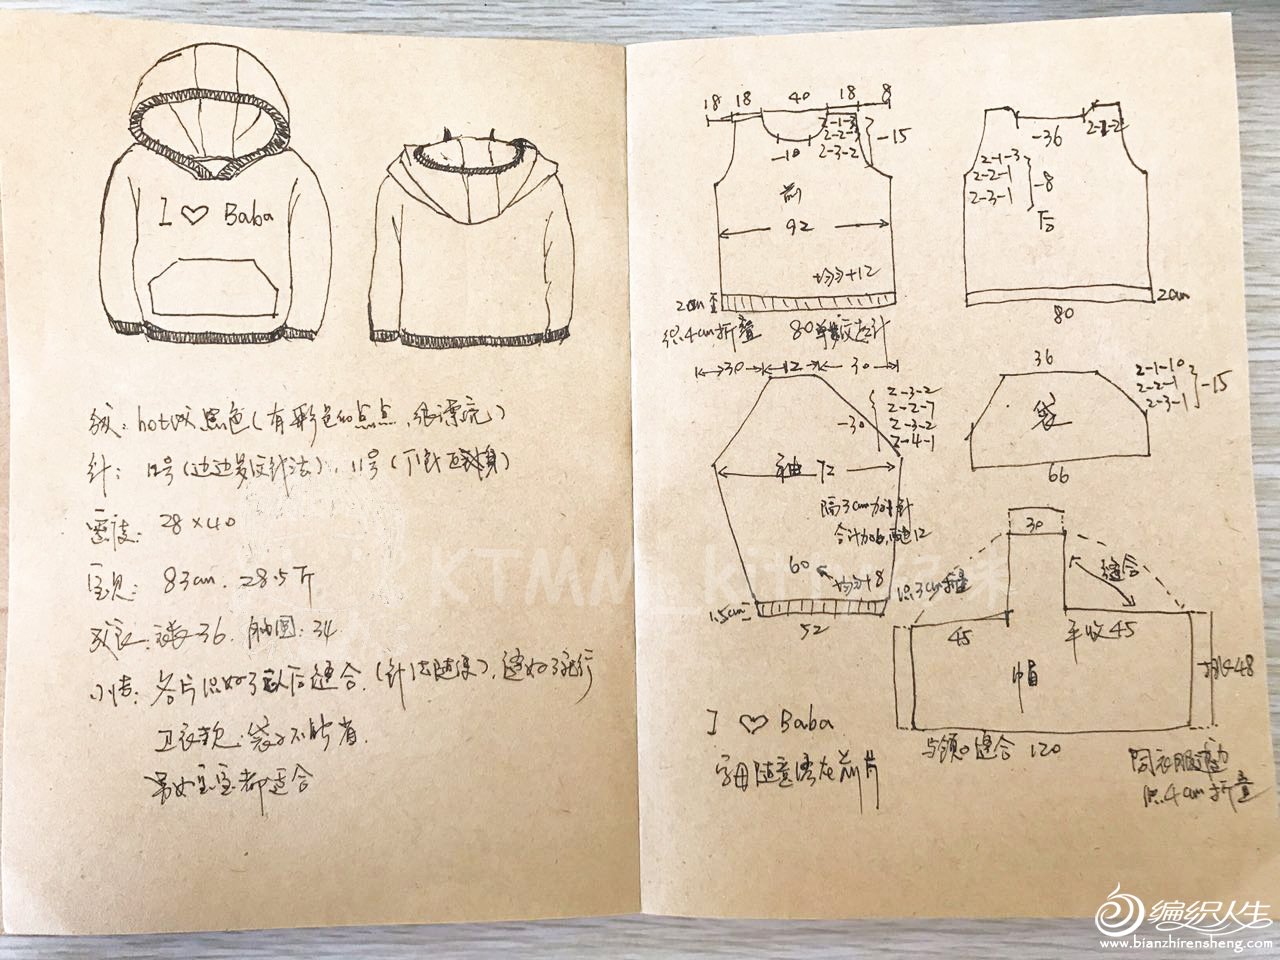 I ♡ Baba
线: hot线 黑色(有彩色的点点,很漂亮)
针: 12号(边边
), 11号(下针
密度: 28×40
宝贝: 83cm, 28.5斤
衣长: 36, 胸围: 34
小结: 各片织好了以后缝合,(针法随便),
卫衣款,袋子不能省.
男女宝宝都适合
18 18 40 18 8
-10
2-1-3
2-2-3
2-3-2
-15
前
92
均匀+12
2cm
织4cm折叠
80单螺纹起针
-36
2-2-2
2-1-3
2-2-1
2-3-1
-8
后
2cm
80
30 12 30
2-3-2
2-2-7
2-3-2
2-4-1
-30
袖 72
隔3cm加1针
合计加6,两边12
60
均匀+8
织3cm折叠
1.5cm
52
36
2-1-10
2-2-1
2-3-1
-15
袋
66
30
缝合
45
平收45
帽
挑48
与领口缝合 120
同衣服边
织4cm折叠
I ♡ Baba
字母随意绣在前片
KTMM_kitty
编织人生
www.bianzhirensheng.com